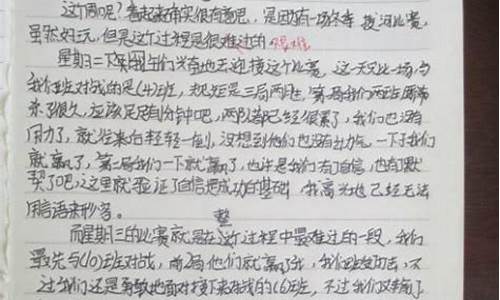 这个周呢？看起来确实很有意思，是因为有一场冬季拔河比赛，
虽然好玩，但是这个过程是很难过的 艰难
星期二下午同学们兴奋地去迎接这个比赛，这一天只比一场，与
我们班对战的是(4)班，规矩是三局两胜，第一局我们两班僵持
来了很久，应该足足有1分钟吧，两队都已经很累了，我们也没有
用力了，就往来自轻轻一倒，没想到他们也没有出力气，一下子我们
就赢了，第二局我们一下就赢了，也许是我们有了自信，也有了默
契了吧，这里就验证了自信把成功的基础，我高兴地已经无法
用言语来形容。 整
而星期三的比赛就是在这个过程中最难过的一段，我们
最先与(10)班对战，前2局他们就赢了我，我们班没力去，不
过我们还是勇敢地面对接下来对战的(6)班，不过我们又输了